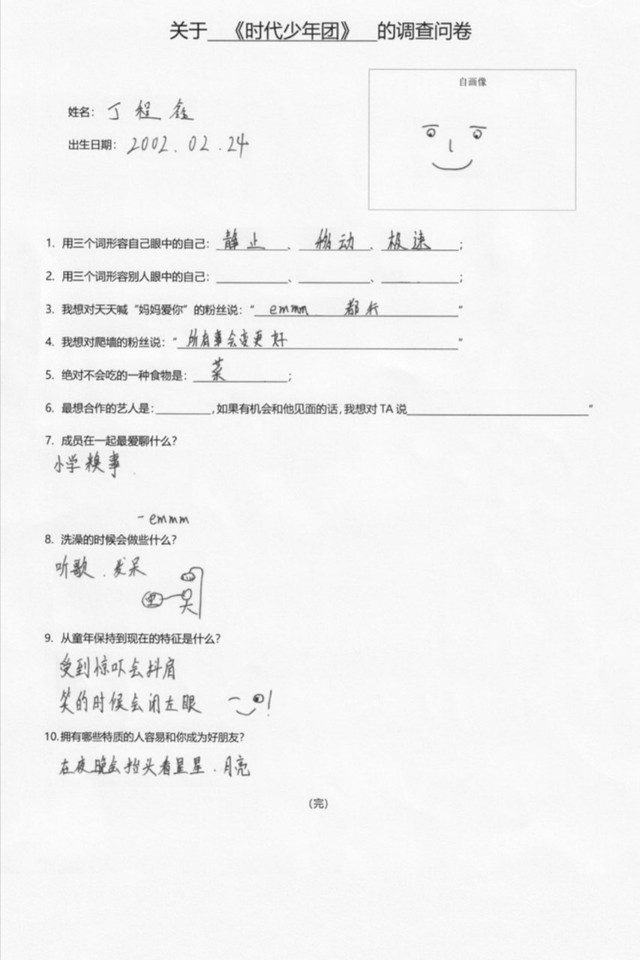 关于 《时代少年团》 的调查问卷
自画像
姓名：丁程鑫
出生日期：2002.02.24
1. 用三个词形容自己眼中的自己：静止、 动、极速；
2. 用三个词形容别人眼中的自己：________、________、________；
3. 我想对天天喊“妈妈爱你”的粉丝说：“emmm 都行”
4. 我想对爬墙的粉丝说：“所有事会变更好”
5. 绝对不会吃的一种食物是：菜；
6. 最想合作的艺人是：________，如果有机会和他见面的话，我想对 TA 说________”
7. 成员在一起最爱聊什么？
小学糗事.
-emmm
8. 洗澡的时候会做些什么？
听歌、发呆
9. 从童年保持到现在的特征是什么？
受到惊吓会抖肩
笑的时候会闭左眼 !
10. 拥有哪些特质的人容易和你成为好朋友？
在夜晚会抬头看星星、月亮
（完）